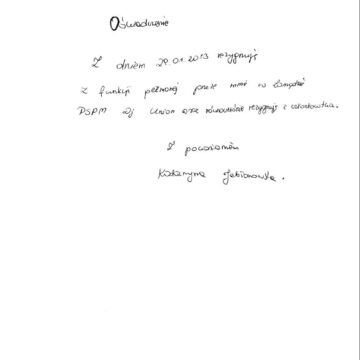 Oświadczenie
Z dniem 29.01.2013 rezygnuję
z funkcji pełnionej przeze mnie w Zarządzie
PSPM Dj Union oraz równocześnie rezygnuję z członkostwa.
Z poważaniem
Katarzyna